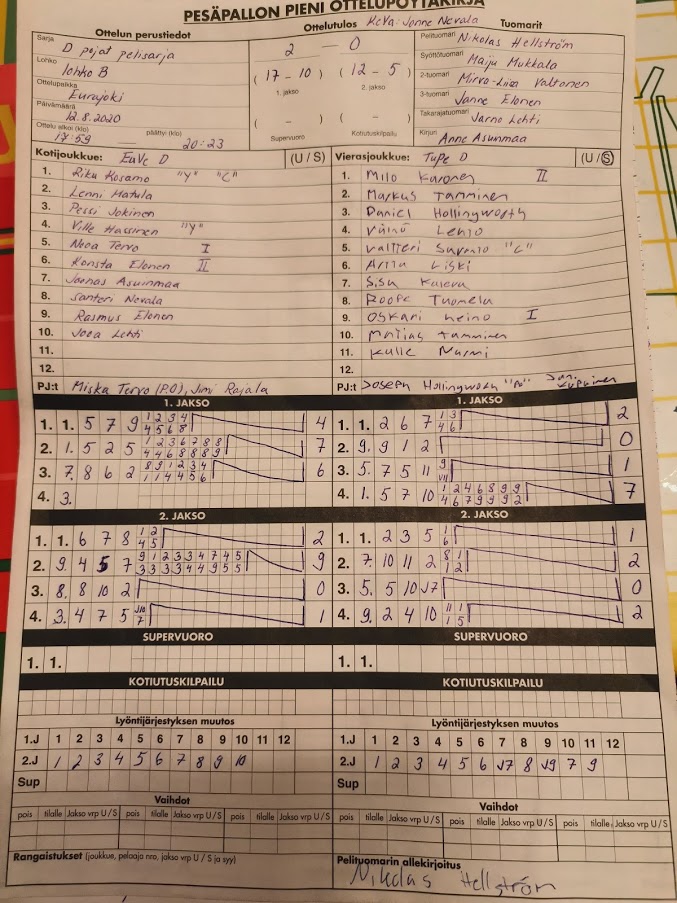 PESÄPALLON PIENI OTTELUPÖYTÄKIRJA
Ottelun perustiedot
Sarja D pojat pelisarja
Lohko lohko B
Ottelupaikka Eurajoki
Päivämäärä 12.8.2020
Ottelu alkoi (klo) 17:59 päättyi (klo) 20:23
Ottelutulos KeVa: Janne Nevala
2 — 0
( 17 - 10 ) ( 12 - 5 )
1. jakso 2. jakso
( - ) ( - )
Supervuoro Kotiutuskilpailu
Tuomarit
Pelituomari Nikolas Hellström
Syöttötuomari Maiju Mukkala
2-tuomari Mirva-Liisa Valtonen
3-tuomari Janne Elonen
Takarajatuomari Jarno Lehti
Kirjuri Anne Asunmaa
Kotijoukkue: EuVe D (U/S)
1. Riku Kosamo "Y" "C"
2. Lenni Matula
3. Pessi Jokinen
4. Ville Hassinen "Y"
5. Nooa Tervo I
6. Konsta Elonen II
7. Joonas Asuinmaa
8. Santeri Nevala
9. Rasmus Elonen
10. Jooa Lehti
11.
12.
PJ:t Miska Tervo (P.O), Jimi Rajala
Vierasjoukkue: TuPe D (U/S)
1. Milo Karonen II
2. Markus Tamminen
3. Daniel Hollingworth
4. Väinö Lehto
5. Valtteri "C"
6. Arttu Liski
7. Sisu
8. Roope Tuomela
9. Oskari Heino I
10. Matias Tamminen
11. Kalle Nurmi
12.
PJ:t Joseph Hollingworth
1. JAKSO
1. 1. 5 7 9 1 2 3 4 4
4 5 6 8
2. 1. 5 2 5 1 2 3 6 7 8 8 7
4 4 6 8 8 8 9
3. 7. 8 6 2 8 9 1 2 3 4 6
1 1 4 4 5 6
4. 3.
1. JAKSO
1. 1. 2 6 7 1 3 2
4 6
2. 9. 9 1 2 0
3. 5. 7 5 11 9 1
4. 1. 5 7 10 1 2 4 6 8 9 9 7
4 6 7 9 9 9 2
2. JAKSO
1. 1. 6 7 8 1 2 2
4 5
2. 9. 4 5 7 9 1 2 3 3 4 7 4 5 9
3 3 3 3 4 4 9 5 5
3. 8. 8 10 2 0
4. 3. 4 7 5 J10 1
7
2. JAKSO
1. 1. 2 3 5 1 1
6
2. 7. 10 11 2 8 1 2
1 2
3. 5. 5 10 J7 0
4. 9. 2 4 10 11 1 2
1 5
SUPERVUORO
1. 1.
SUPERVUORO
1. 1.
KOTIUTUSKILPAILU
KOTIUTUSKILPAILU
Lyöntijärjestyksen muutos
1.J 1 2 3 4 5 6 7 8 9 10 11 12
2.J 1 2 3 4 5 6 7 8 9 10
Sup
Lyöntijärjestyksen muutos
1.J 1 2 3 4 5 6 7 8 9 10 11 12
2.J 1 2 3 4 5 6 J7 8 J9 7 9
Sup
Vaihdot
pois tilalle Jakso vrp U/S pois tilalle Jakso vrp U/S pois tilalle Jakso vrp U/S
Vaihdot
pois tilalle Jakso vrp U/S pois tilalle Jakso vrp U/S pois tilalle Jakso vrp U/S
Rangaistukset (joukkue, pelaaja nro, jakso vrp U/S ja syy)
Pelituomarin allekirjoitus
Nikolas Hellström